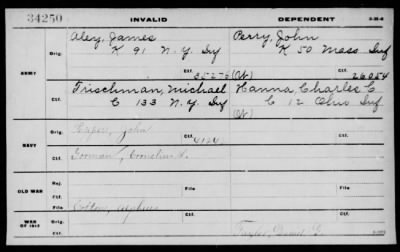 34250 INVALID DEPENDENT
Aley, James Perry, John
Orig. K 91 N.Y. Inf K 50 Mass Inf
ARMY
Ctf. 35275 (Pt) 26054
Frischman, Michael Hanna, Charles C
Ctf. C 133 N.Y. Inf C 12 Ohio Inf
(Pt)
Orig. John
NAVY Ctf. 4124
Ctf. Gorman, Cornelius
OLD WAR Rej. File
Ctf. File
WAR OF 1812 Orig.
Ctf.